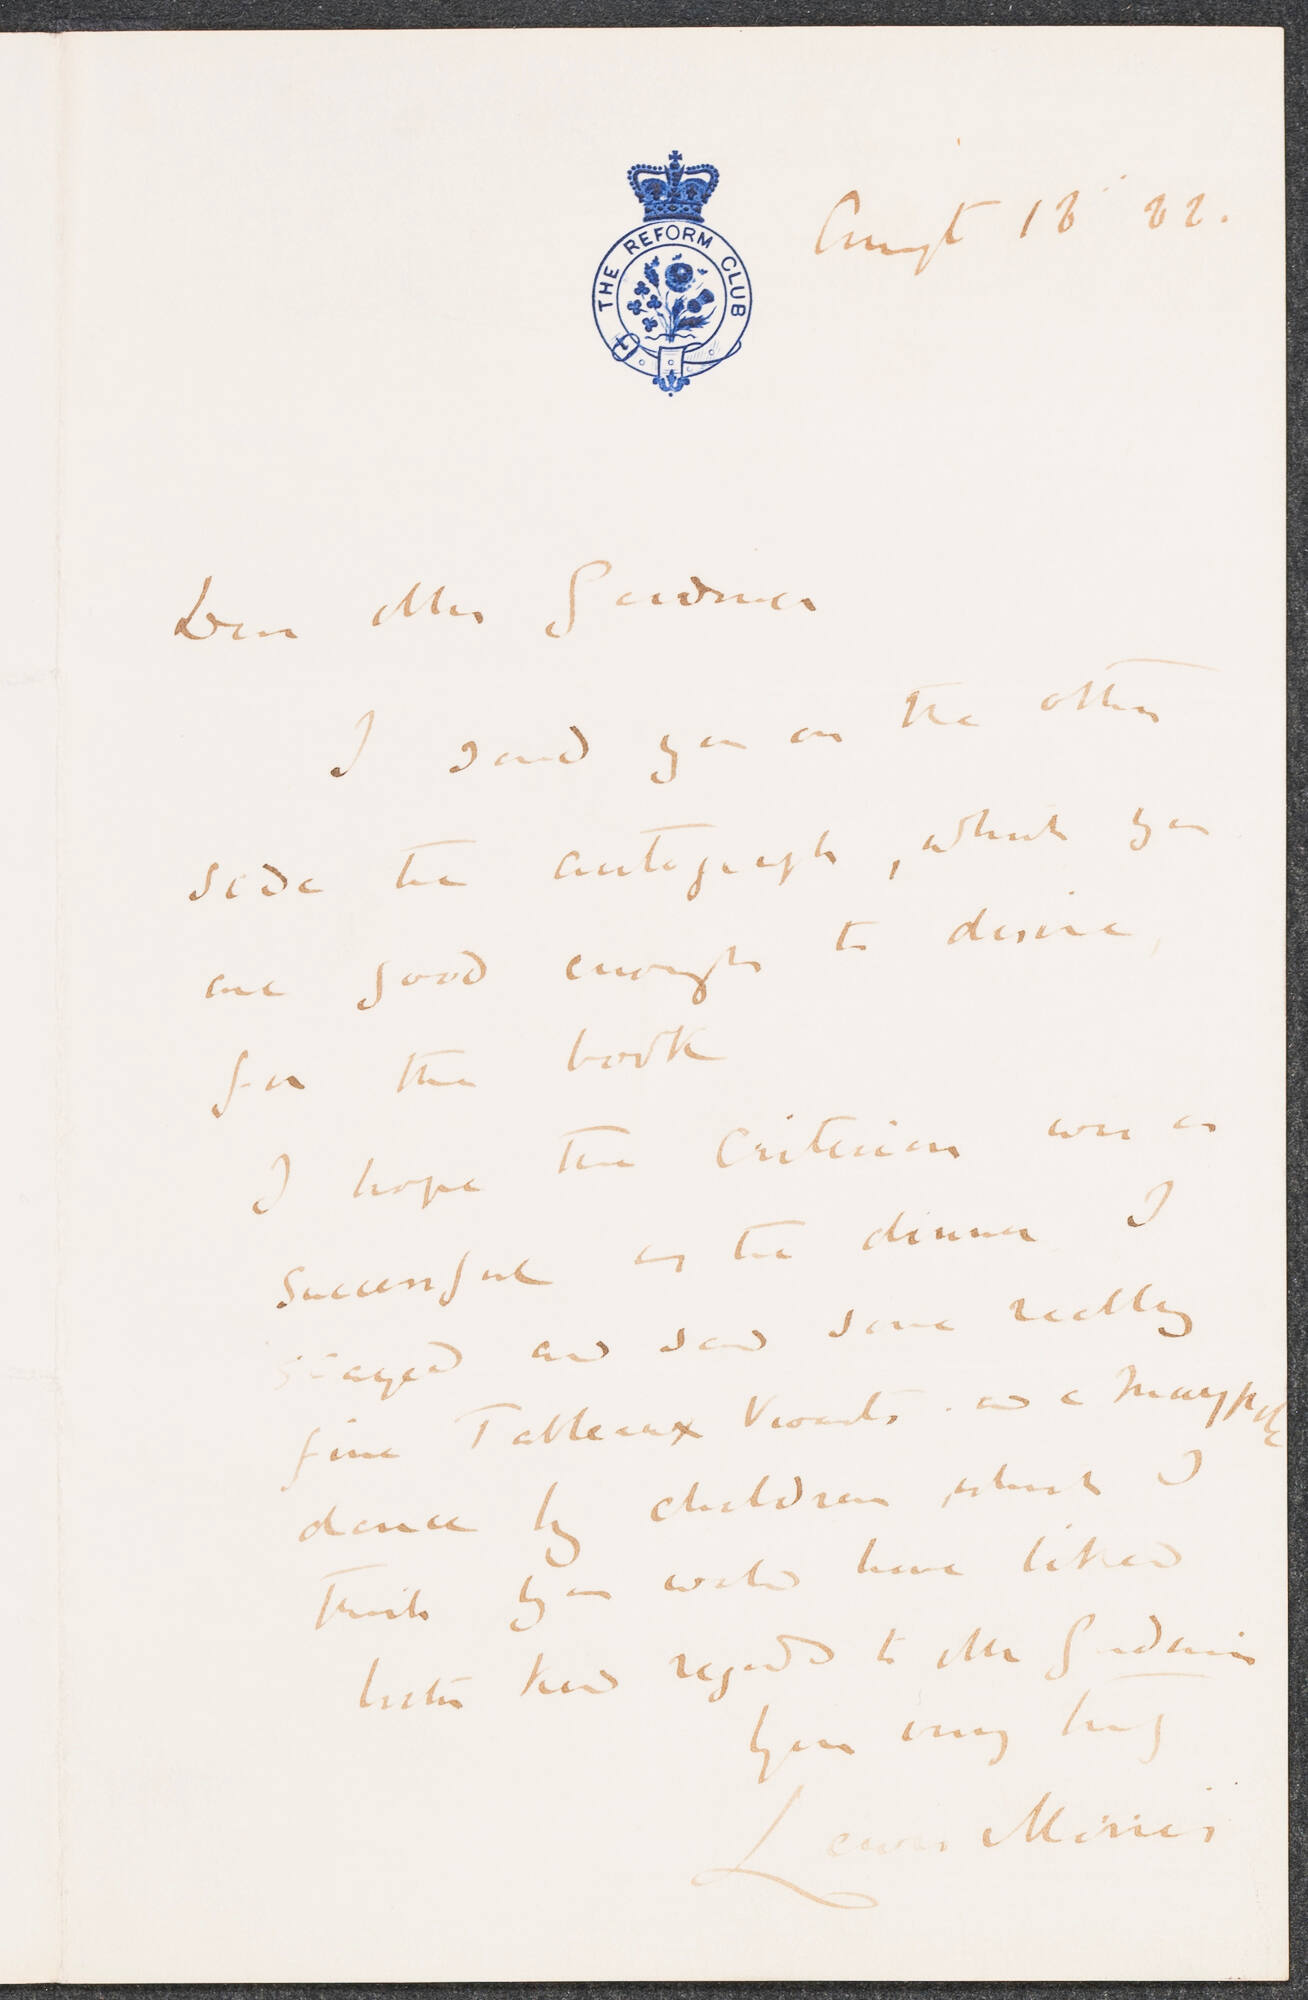 THE REFORM CLUB
Augst 18 88.
Dear Mrs Gardner
I send you on the other
side the autograph, which you
are good enough to desire,
for the book
I hope the Criterion was as
successful as the dinner I
stayed and saw some really
fine Tableaux Vivants. and a Maypole
dance by children, which I
think you would have liked
With kind regards to Mr Gardner
Yours very truly
Lewis Morris